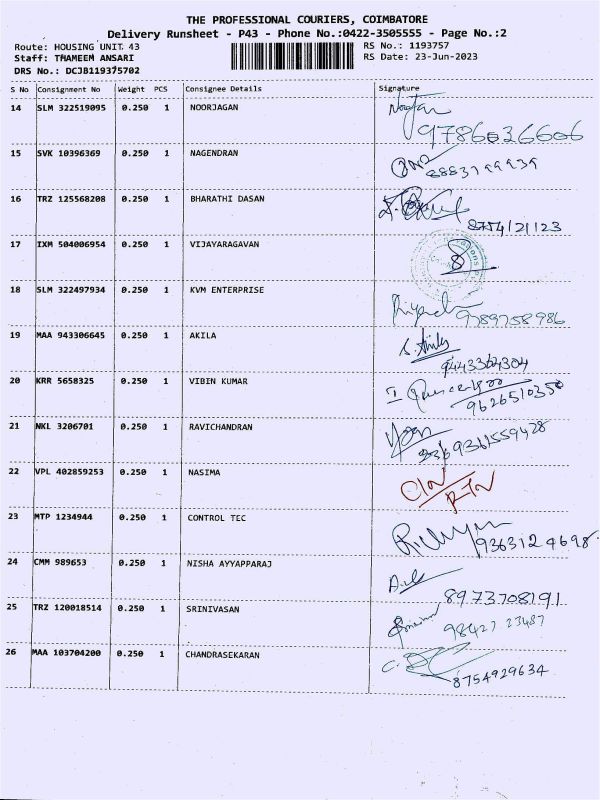 THE PROFESSIONAL COURIERS, COIMBATORE
Delivery Runsheet - P43 - Phone No.:0422-3505555 - Page No.:2
Route: HOUSING UNIT 43 RS No.: 1193757
Staff: THAMEEM ANSARI RS Date: 23-Jun-2023
DRS No.: DCJB119375702
S No Consignment No Weight PCS Consignee Details Signature
14 SLM 322519095 0.250 1 NOORJAGAN
9786036606
15 SVK 10396369 0.250 1 NAGENDRAN
16 TRZ 125568208 0.250 1 BHARATHI DASAN
8754121123
17 IXM 504006954 0.250 1 VIJAYARAGAVAN
18 SLM 322497934 0.250 1 KVM ENTERPRISE
9789758986
19 MAA 943306645 0.250 1 AKILA
9443364304
20 KRR 5658325 0.250 1 VIBIN KUMAR
9626510350
21 NKL 3206701 0.250 1 RAVICHANDRAN
9361559428
22 VPL 402859253 0.250 1 NASIMA
RTN
23 MTP 1234944 0.250 1 CONTROL TEC
9363124698
24 CMM 989653 0.250 1 NISHA AYYAPPARAJ
8973708191
25 TRZ 120018514 0.250 1 SRINIVASAN
98427 23487
26 MAA 103704200 0.250 1 CHANDRASEKARAN
8754929634